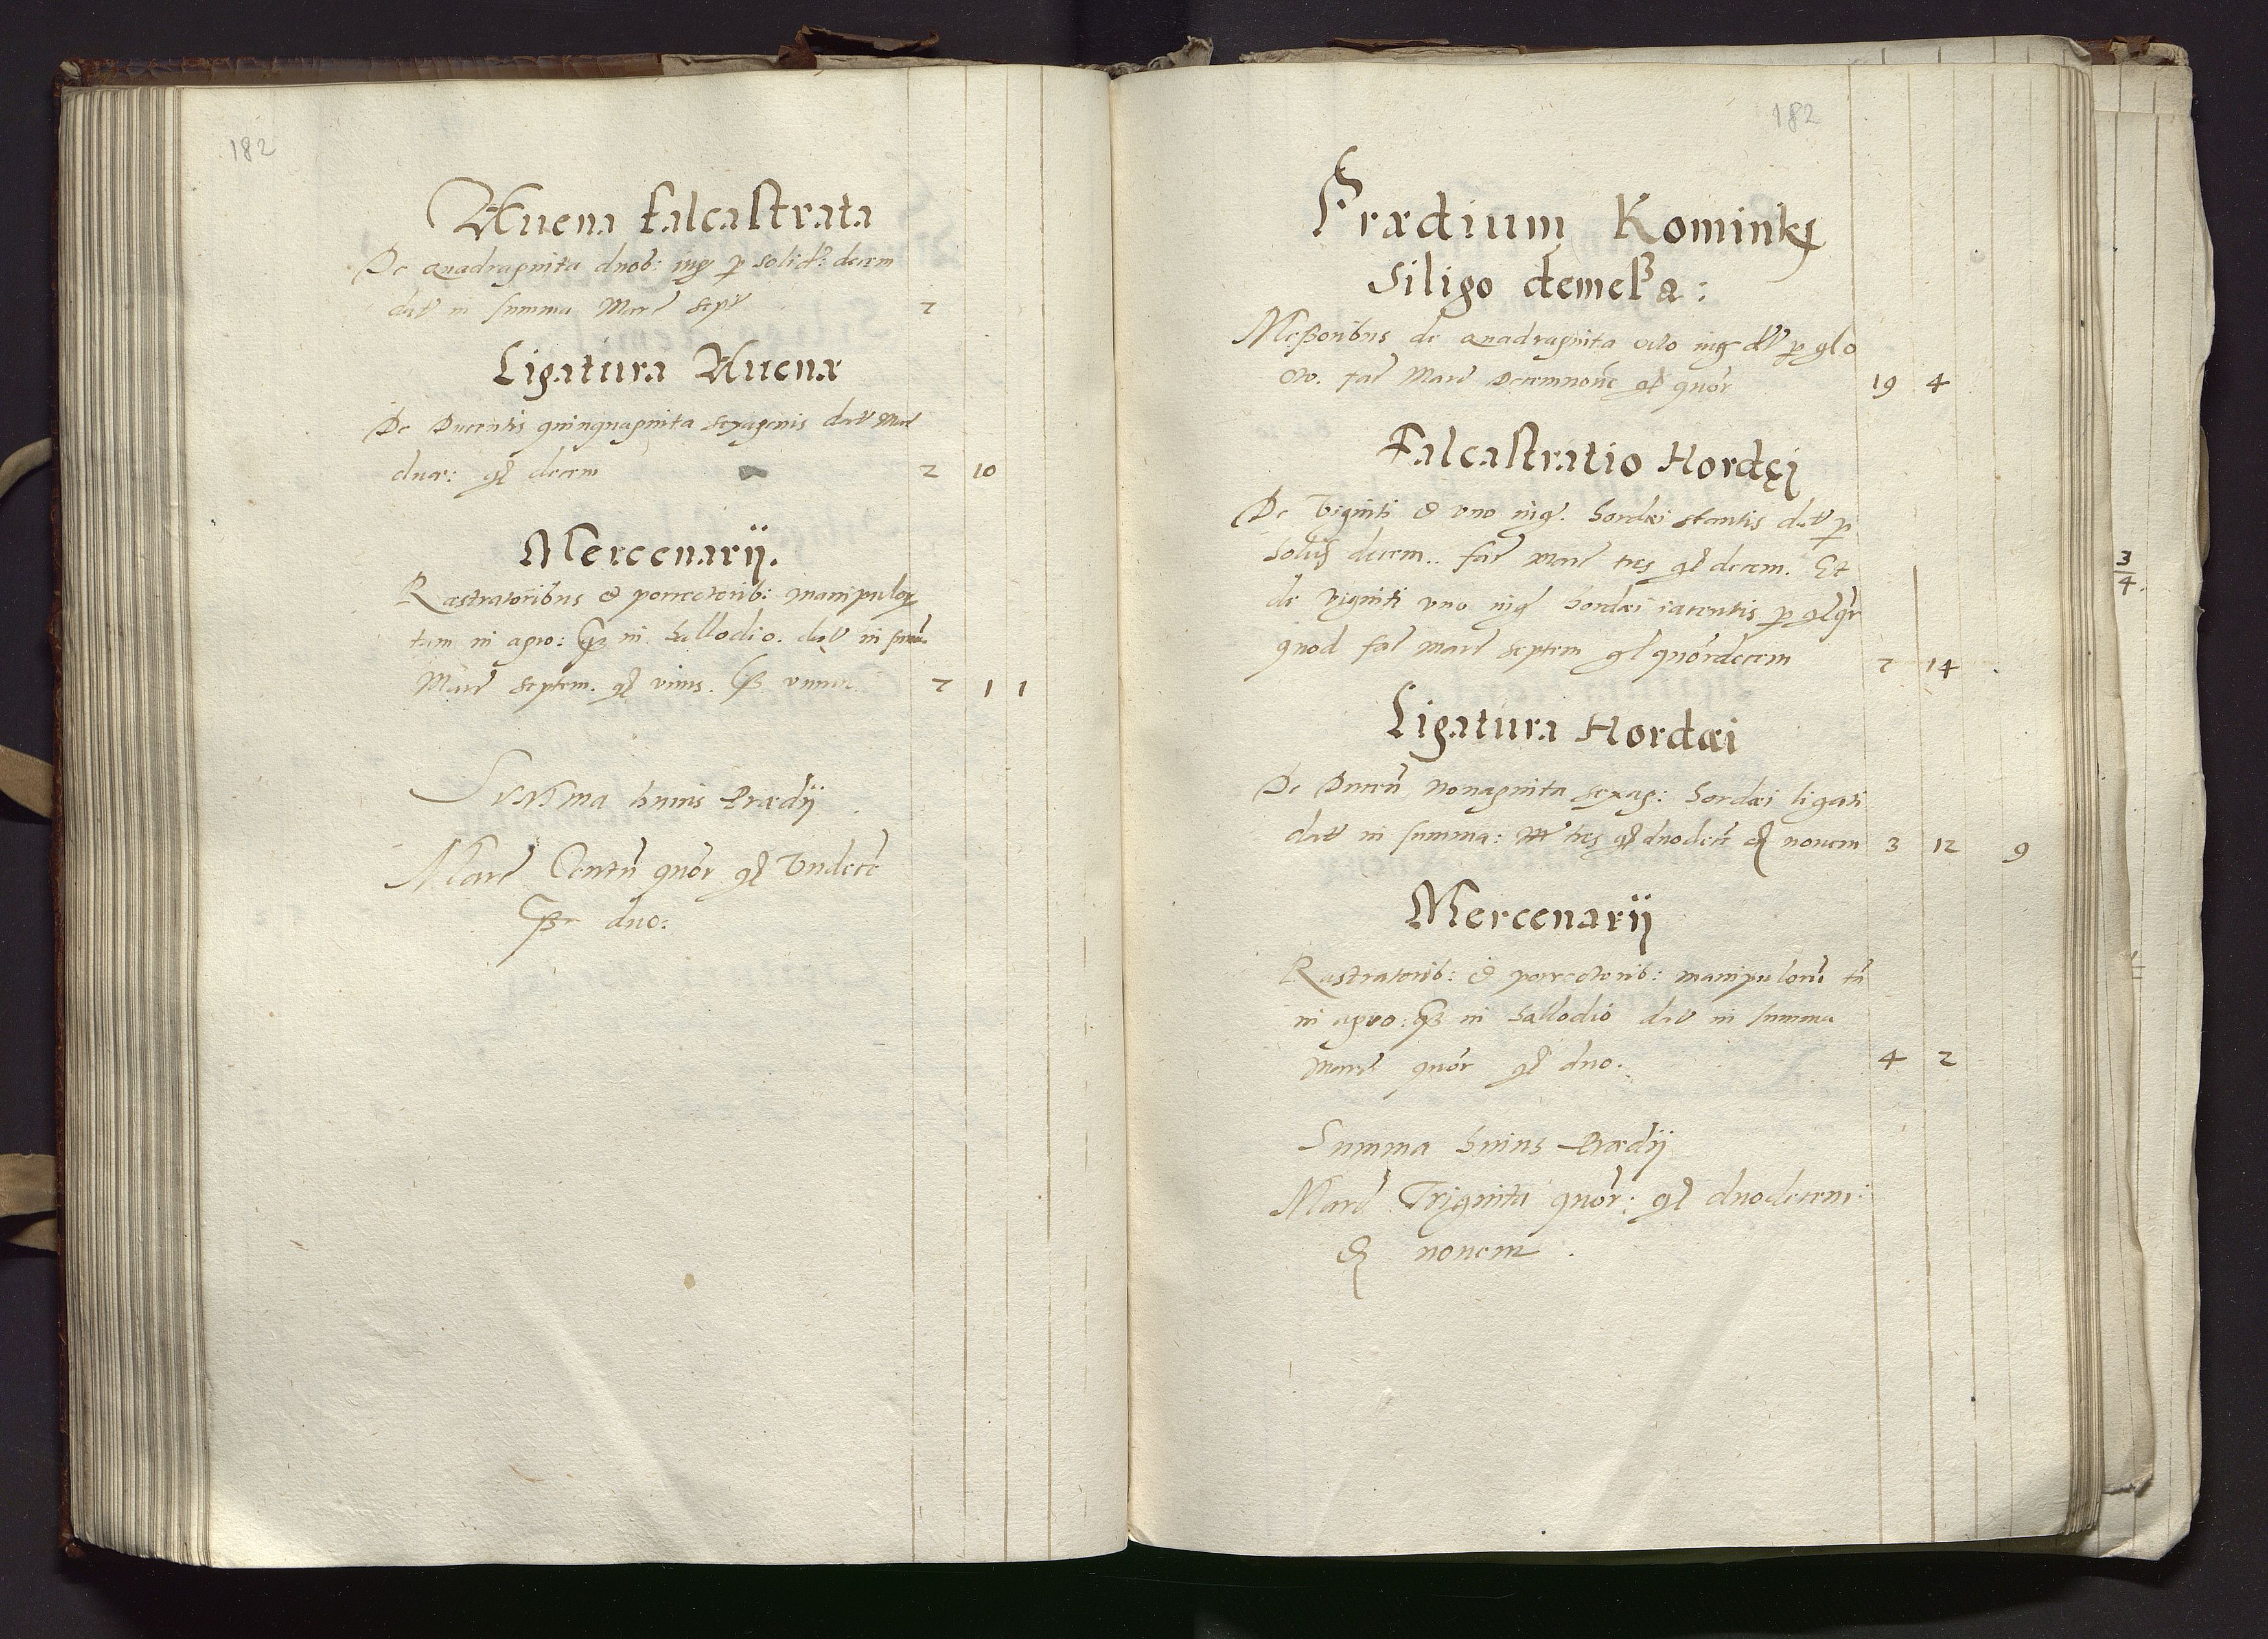 182
Auena falcastrata
De quadraginta duob: iug p solid: decem
dat in summa Marc sept 7
Ligatura Auenæ
De Ducentis quinquaginta sexagenis dat Mar
duæ: gl decem 2 10
Mercenarij.
Rastratoribus & porrectorib: manipulor
tam in agro: in hallodio. dat in sum
Marc septem. gl unus. unum 7 1 1
Summa huius Prædij
Marc Centu quor gl Undece
duo:
182
Prædium Kominky
Siligo demeßa:
Meßoribus de quadraginta octo iug dt p glo
octo. fac Marc Decemnoue gl quor 19 4
Falcastratio Hordęj
De Viginti & vno iug. hordæi stantis dat p
solid decem.. fac Marc tres gl decem. Et
de viginti vno iug hordæi iacentis p gl qr
quod fac marc septem gl quordecem 7 14
Ligatura Hordæi
De Ducen Nonaginta sexag: hordæi ligati
datt in summa: M tres gl duodece noncm 3 12 9
Mercenarij
Rastratorib: & porrectorib: manipuloru ta
in agro: in hallodio dat in summa
Marc quor gl duo. 4 2
Summa huius Prædij
Marc Triginta quor: gl duodecem:
nouem.
3
4.